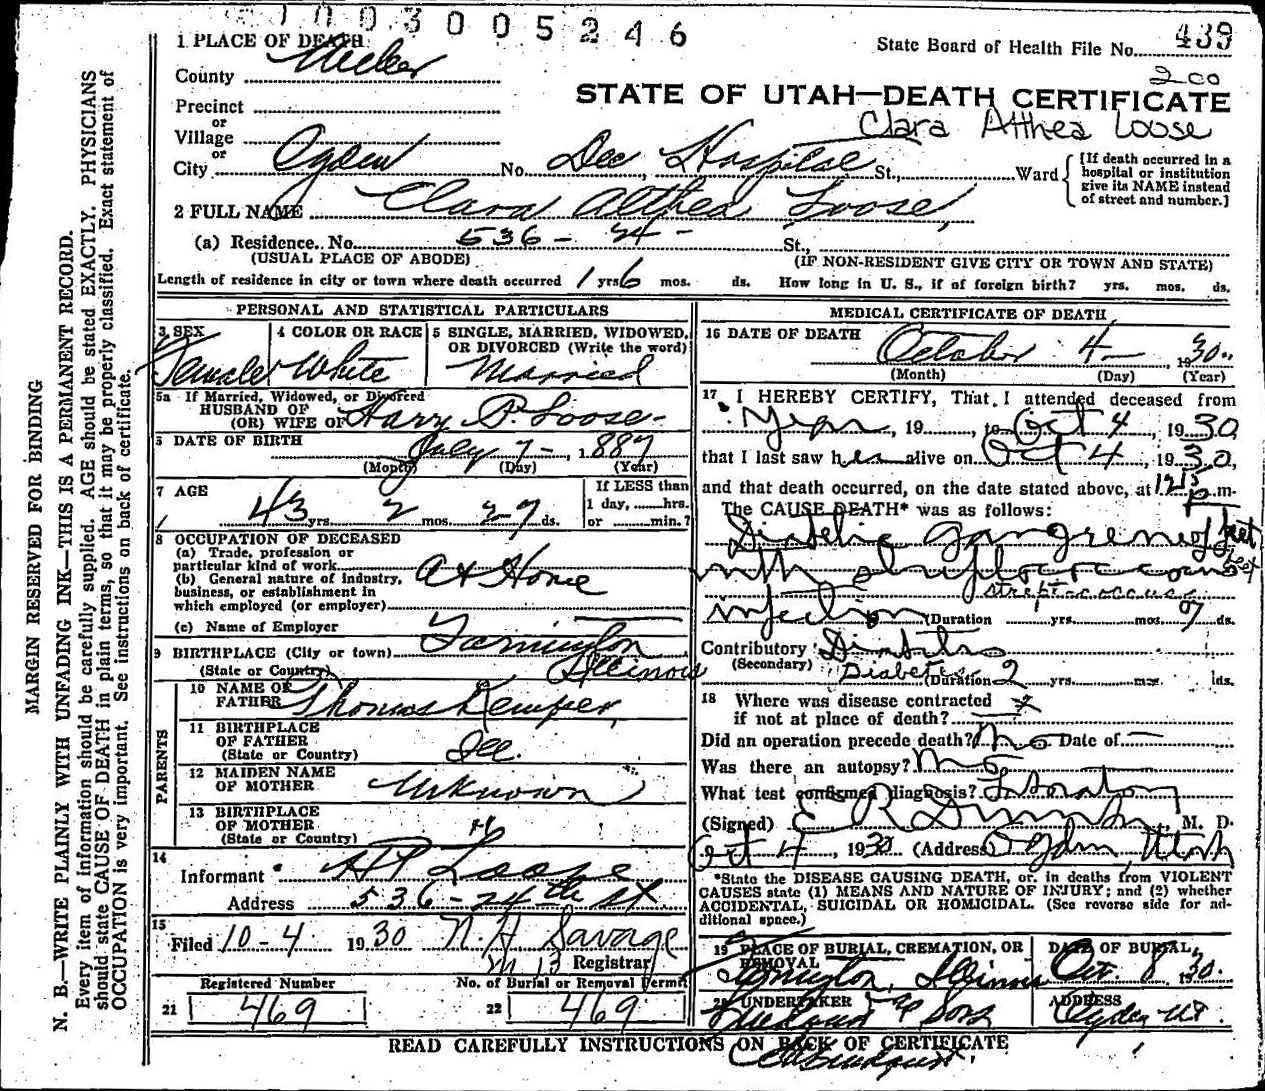 1003005246
1 PLACE OF DEATH
State Board of Health File No. 439
County Weber
200
Precinct
STATE OF UTAH—DEATH CERTIFICATE
or
Village
Clara Althea Loose
or
City Ogden No. Dee Hospital St., Ward
[If death occurred in a
hospital or institution
give its NAME instead
of street and number.]
2 FULL NAME Clara Althea Loose,
(a) Residence. No. 536 - 24 - St.,
(USUAL PLACE OF ABODE) (IF NON-RESIDENT GIVE CITY OR TOWN AND STATE)
Length of residence in city or town where death occurred 1 yrs 6 mos. ds. How long in U. S., if of foreign birth? yrs. mos. ds.
PERSONAL AND STATISTICAL PARTICULARS
3 SEX
Female
4 COLOR OR RACE
White
5 SINGLE, MARRIED, WIDOWED,
OR DIVORCED (Write the word)
Married
5a If Married, Widowed, or Divorced
HUSBAND OF
(OR) WIFE OF Harry P. Loose -
6 DATE OF BIRTH
July 7 - , 1887
(Month) (Day) (Year)
7 AGE
43 yrs. 2 mos. 27 ds.
If LESS than
1 day, ......hrs.
or ......min.?
8 OCCUPATION OF DECEASED
(a) Trade, profession or
particular kind of work
(b) General nature of industry,
business, or establishment in
which employed (or employer)
At Home
(c) Name of Employer
9 BIRTHPLACE (City or town) Farmington
(State or Country) Illinois
PARENTS
10 NAME OF
FATHER Thomas Kemper,
11 BIRTHPLACE
OF FATHER
(State or Country) Ill.
12 MAIDEN NAME
OF MOTHER Unknown
13 BIRTHPLACE
OF MOTHER
(State or Country) "
14
Informant HP Loose
Address 536 - 24th St
15
Filed 10-4 1930 N. H. Savage
Registrar
Registered Number No. of Burial or Removal Permit
21 469 22 469
MEDICAL CERTIFICATE OF DEATH
16 DATE OF DEATH October 4 - 1930
(Month) (Day) (Year)
17 I HEREBY CERTIFY, That I attended deceased from
Year, 19......, to Oct 4, 1930,
that I last saw her alive on Oct 4, 1930,
and that death occurred, on the date stated above, at 1215 p.m.
The CAUSE DEATH* was as follows:
Diabetic gangrene of feet
feet
with streptococcus
streptococcus
infection (Duration yrs. mos. 7 ds.
Contributory Diabetes
(Secondary) Diabetes (Duration 2 yrs. mos. ds.
18 Where was disease contracted
if not at place of death?
Did an operation precede death? No Date of —
Was there an autopsy? No
What test confirmed diagnosis? Laboratory
(Signed) E R , M. D.
Oct 4, 1930 (Address) Ogden, Utah
*State the DISEASE CAUSING DEATH, or, in deaths from VIOLENT
CAUSES state (1) MEANS AND NATURE OF INJURY; and (2) whether
ACCIDENTAL, SUICIDAL OR HOMICIDAL. (See reverse side for ad-
ditional space.)
19 PLACE OF BURIAL, CREMATION, OR
REMOVAL
Farmington, Illinois
DATE OF BURIAL
Oct. 8 1930.
20 UNDERTAKER
Lindquist & Sons
ADDRESS
Ogden Ut.
READ CAREFULLY INSTRUCTIONS ON BACK OF CERTIFICATE
MARGIN RESERVED FOR BINDING
N. B.—WRITE PLAINLY WITH UNFADING INK—THIS IS A PERMANENT RECORD.
Every item of information should be carefully supplied. AGE should be stated EXACTLY. PHYSICIANS
should state CAUSE OF DEATH in plain terms, so that it may be properly classified. Exact statement of
OCCUPATION is very important. See instructions on back of certificate.